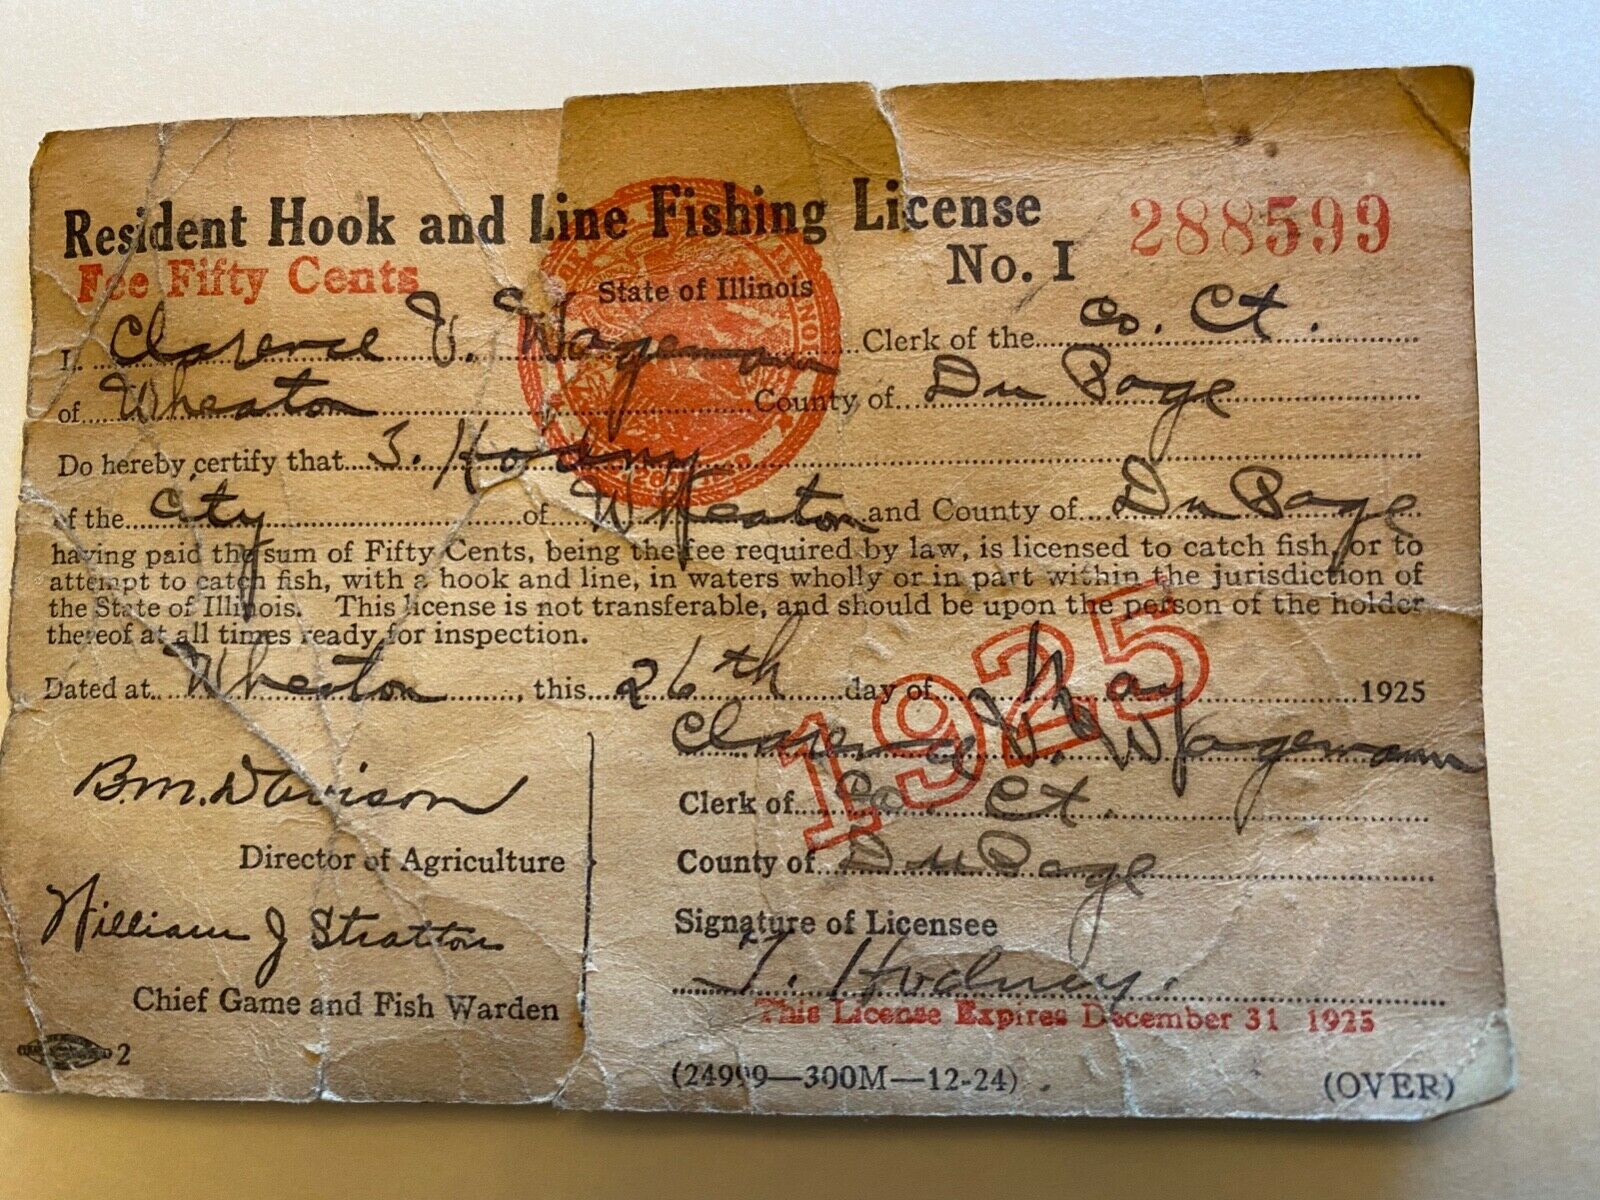 Resident Hook and Line Fishing License
No. I 288599
Fee Fifty Cents
State of Illinois
I, Clarence V. Wagemann Clerk of the Co. Ct.
of Wheaton County of Du Page
Do hereby certify that Hodny
of the City of Wheaton and County of Du Page
having paid the sum of Fifty Cents, being the fee required by law, is licensed to catch fish, or to
attempt to catch fish, with a hook and line, in waters wholly or in part within the jurisdiction of
the State of Illinois. This license is not transferable, and should be upon the person of the holder
thereof at all times ready for inspection.
Dated at Wheaton, this 26th day of May 1925
1925
Clarence V. Wagemann
B.M. Davison
Clerk of Co. Ct.
Director of Agriculture
County of Du Page
William J Stratton
Signature of Licensee
Hodny.
Chief Game and Fish Warden
This License Expires December 31 1925
2
(24999—300M—12-24)
(OVER)